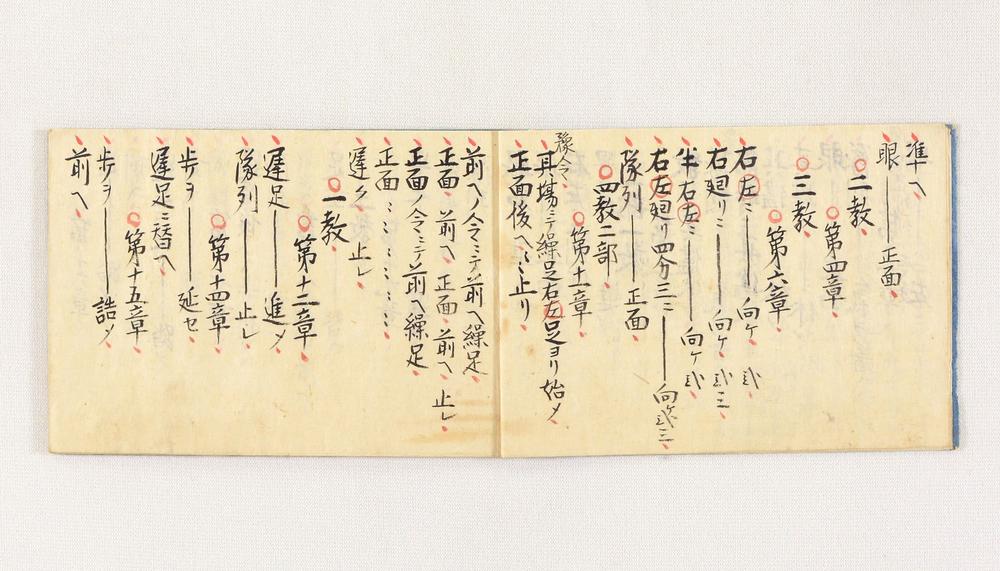 準ヘ
眼──正面
○二教
○第四章
○三教
○第六章
右左ニ──向ケ
右廻リニ──向ケ 三
半右左ニ──向ケ
右左廻リ四分三ニ──向ケ
隊列──正面
○四教二部
○第十一章
豫令
其場ニテ繰足右左足ヨリ始メ
正面後ヘ〻〻止リ
前ヘノ令ニテ前ヘ繰足
正面 前ヘ 正面 前ヘ 止レ
正面ノ令ニテ前ヘ繰足
正面〻〻〻〻〻
遅ク〻 止レ
○一教
○第十二章
遅足──進メ
隊列──止レ
○第十四章
歩ヲ──延セ
遅足ニ替ヘ
○第十五章
歩ヲ──詰メ
前ヘ